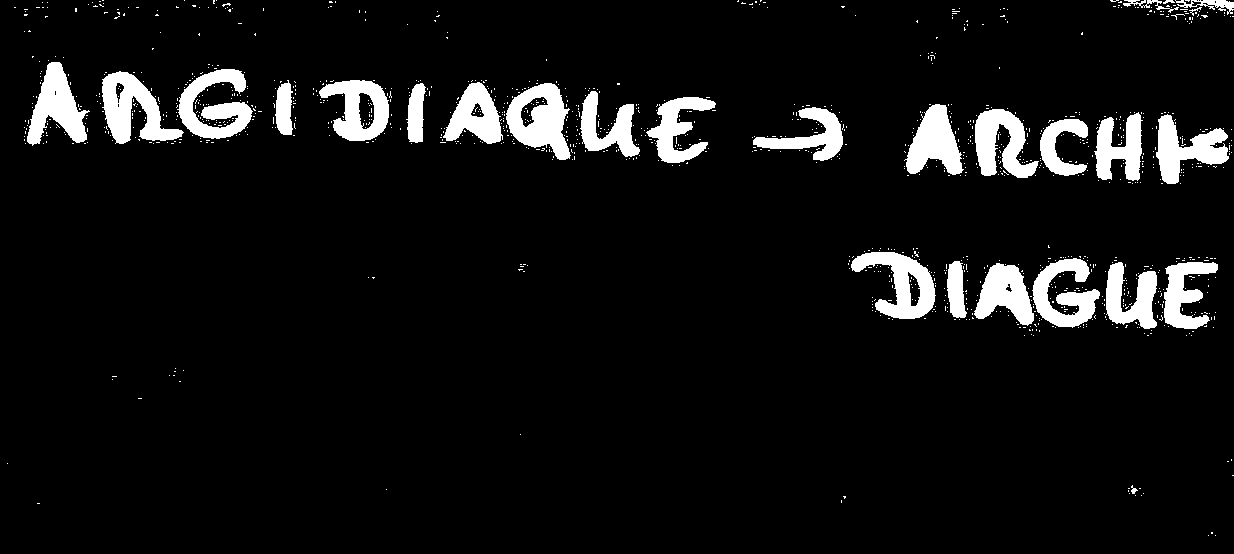 ARGIDIAQUE → ARCHI-
DIAGUE